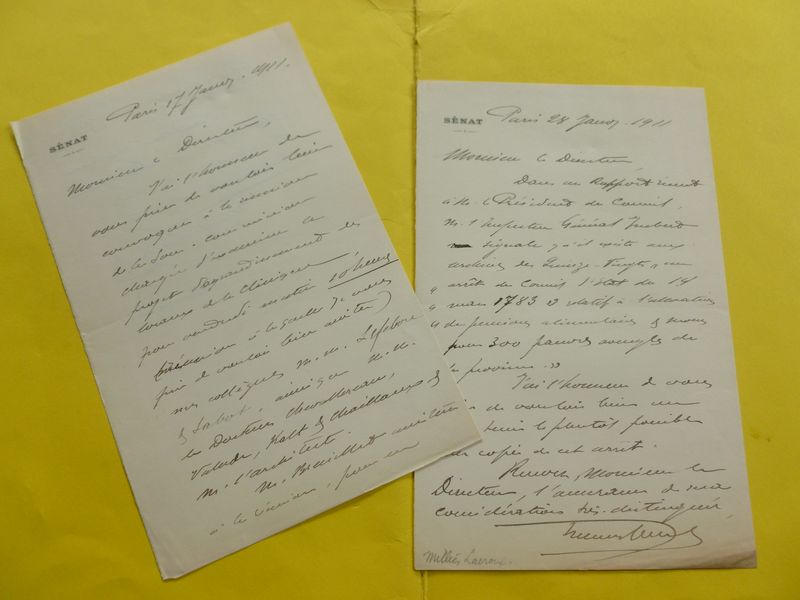 SÉNAT
Paris 17 Janvr. 1911.
Monsieur le Directeur,
J'ai l'honneur de
vous prier de vouloir bien
convoquer à la réunion
de la Sous-commission
chargée d'examiner le
projet d'agrandissement des
locaux de la Clinique
pour vendredi matin 10 heures
(réunion à laquelle je vous
prie de vouloir bien assister)
mes collègues M.M. Lefebvre
& ainsi que M.M.
les Docteurs Chevallereau,
Valude, Kalt & Chaillous &
M. l'architecte.
M.
à la réunion, pour
SÉNAT
Paris 28 Janvr. 1911
Monsieur le Directeur,
Dans un Rapport récent
à M. le Président du Conseil,
M. l'Inspecteur Général Imbert
signale qu'il existe aux
archives des Quinze-Vingts « un
« arrêt du Conseil d'Etat du 14
« mars 1783 relatif à
« de pensions alimentaires
pour 300 pauvres aveugles de
la province. »
J'ai l'honneur de vous
prier de vouloir bien me
le plus tôt possible
copie de cet arrêt.
Recevez, Monsieur le
Directeur, l'assurance de ma
considération très distinguée,
Milliès Lacroix.